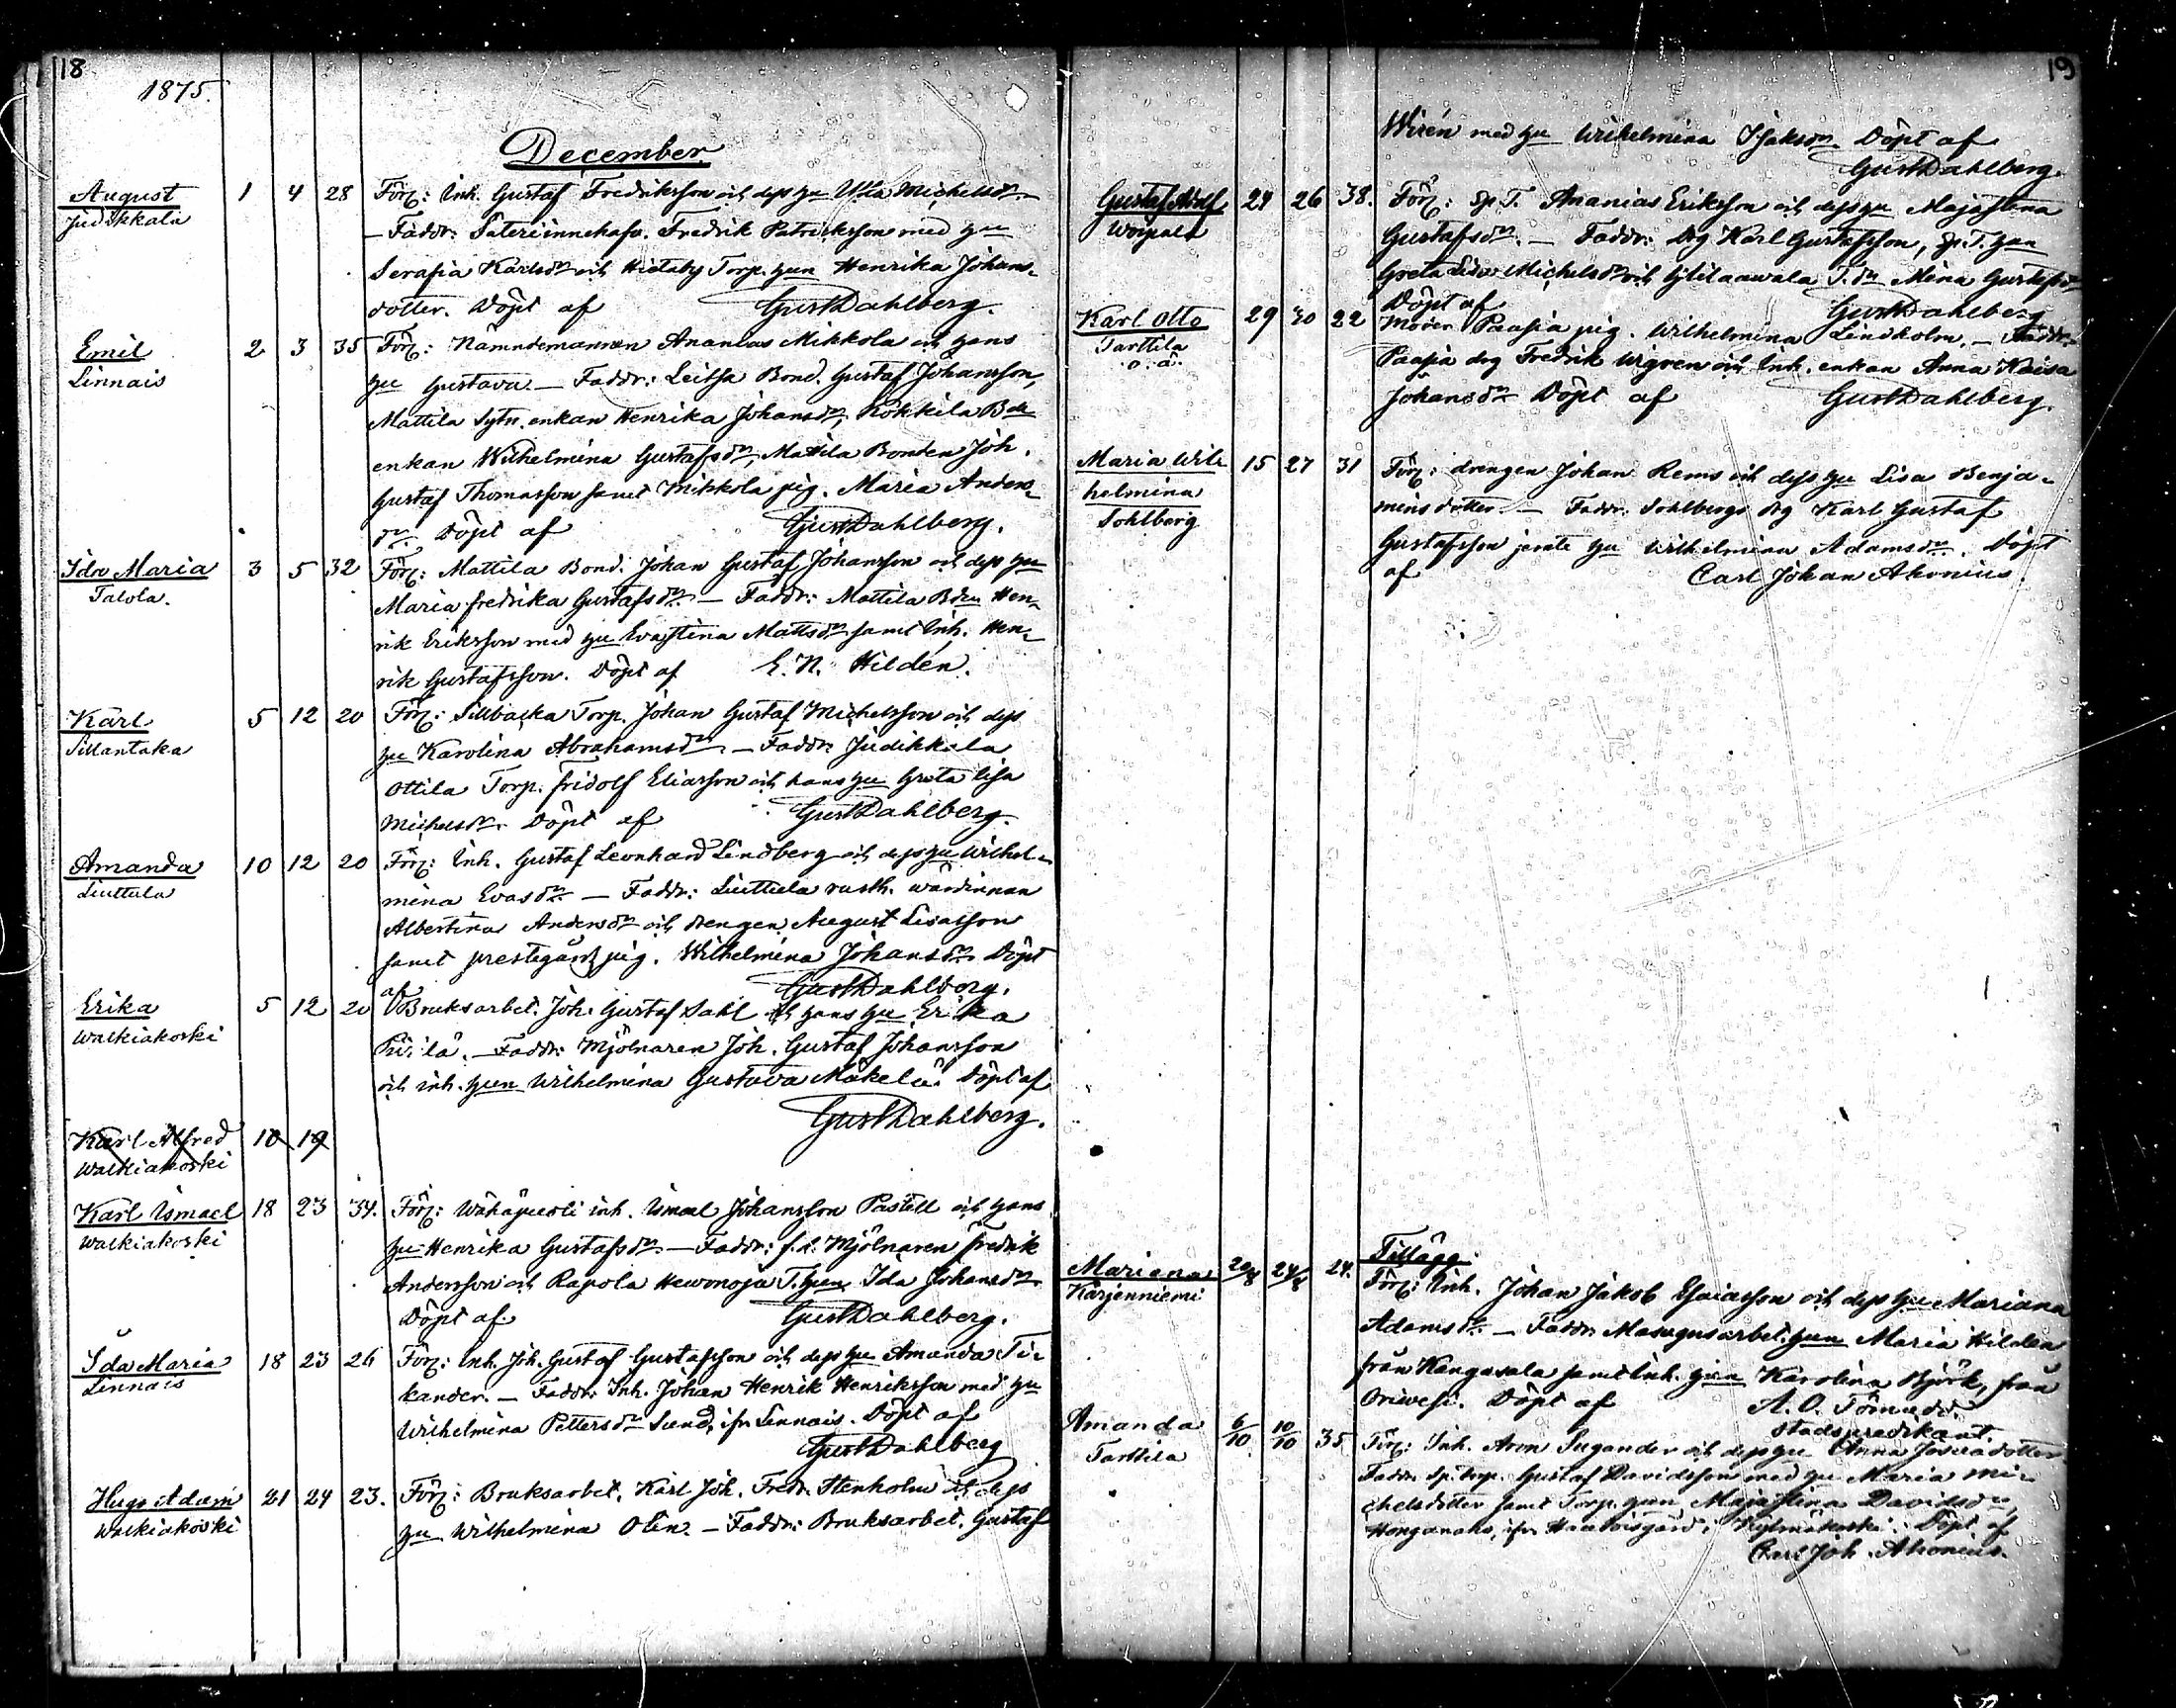 18
1875.
December
August 1 4 28 Förl: Inh. Gustaf Fredriksson och dess hu Ulla Michelsdr
Judikkala — Faddr: Säteriinnehafv. Fredrik Patriksson med hu
Serafia Karlsdr och Hietaby Torp. hun Henrika Johans-
dotter. Döpt af Gust Dahlberg.
Emil 2 3 35 Förl: Nämndemannen Ananias Mikkola och hans
Linnais hu Gustava — Faddr: Leitsa Bond. Gustaf Johansson,
Mattila Sytn. enkan Henrika Johansdr, Kokkila Bde
enkan Wilhelmina Gustafsdr, Mattila Bonden Joh.
Gustaf Thomasson samt Mikkola pig. Maria Anders-
dr Döpt af Gust Dahlberg.
Ida Maria 3 5 32 Förl: Mattila Bond. Johan Gustaf Johansson och dess hu
Talola. Maria Fredrika Gustafsdr — Faddr: Mattila Bden Hen-
rik Eriksson med hu Evastina Mattsdr samt Inh. Hen-
rik Gustafsson. Döpt af E. N. Hildén.
Karl 5 12 20 Förl: Sillbacka Torp. Johan Gustaf Michelsson och dess
Sillantaka hu Karolina Abrahamsdr — Faddr: Judikkala
Ottila Torp. Fridolf Eliasson och hans hu Greta Lisa
Michelsdr. Döpt af Gust Dahlberg.
Amanda 10 12 20 Förl: Inh. Gustaf Leonhard Lindberg och dess hu Wilhel-
Liuttula mina Evasdr — Faddr: Liuttula rusth. wärdinnan
Albertina Andersdr och drengen August Lisasson
samt prestegårds pig. Wilhelmina Johansdr Döpt
af Gust Dahlberg.
Erika 5 12 20 Bruksarbet. Joh. Gustaf Sahl och hans hu Erika
Walkiakoski — Faddr: Mjölnaren Joh. Gustaf Johansson
och inh. hun Wilhelmina Gustava Mäkelä. Döpt af
Gust Dahlberg.
Karl Alfred 10 19
Walkiakoski
Karl Ismael 18 23 34. Förl: Wähäpuoli inh. Ismael Johansson Pastell och hans
Walkiakoski hu Henrika Gustafsdr — Faddr: f.d. Mjölnaren Fredrik
Andersson och Rapola Hewonoja T. hun Ida Johansdr
Döpt af Gust Dahlberg.
Ida Maria 18 23 26 Förl: Inh. Joh. Gustaf Gustafsson och dess hu Amanda Ti-
Linnais kander. — Faddr: Inh. Johan Henrik Henriksson med hu
Wilhelmina Pettersdr Sund, ifr Linnais. Döpt af
Gust Dahlberg
Hugo Adam 21 24 23. Förl: Bruksarbet. Karl Joh. Fredr. Stenholm och dess
Walkiakoski hu Wilhelmina Olin. — Faddr: Bruksarbet. Gustaf
19
Wirén med hu Wilhelmina Isaksdr. Döpt af
Gust Dahlberg.
Gustaf Adolf 24 26 38. Förl: Sp. T. Ananias Eriksson och dess hu Majastina
Woipala Gustafsdr. — Faddr: Drg Karl Gustafsson, Sp. T. hun
Greta Lisa Michelsdr och T. dr Mina Gustafsdr
Döpt af Gust Dahlberg
Karl Otto 29 30 22 Moder: Paasia pig. Wilhelmina Lindholm. — Faddr:
Tarttila Paasia drg Fredrik Wigren och Inh. enkan Anna Kaisa
o. ä. Johansdr Döpt af Gust Dahlberg.
Maria Wil- 15 27 31 Förl: drengen Johan Rems och dess hu Lisa Benja-
helmina minsdotter — Faddr: Sohlbergs drg Karl Gustaf
Sohlberg Gustafsson jemte hu Wilhelmina Adamsdr. Döpt
af Carl Johan Ahonius.
Tillägg:
Mariana 20/8 24/8 24. Förl: Inh. Johan Jakob Esaiasson och dess hu Mariana
Kärjenniemi Adamsdr. — Faddr: Masugnsarbet. hun Maria Hildén
från Kangasala samt Inh. hun Karolina Björk, från
Orivesi. Döpt af A. O. Törnudd.
stadspredikant.
Amanda 6/10 10/10 35 Förl: Inh. Aron Sugander och dess hu Anna
Tarttila Faddr: Sp. torp. Gustaf Davidsson med hu Maria Mi-
chelsdotter samt Torp. hun Majastina Davidsdr,
Honganoho, ifr i Kylmäkoski. Döpt af
Carl Joh. Ahonius.